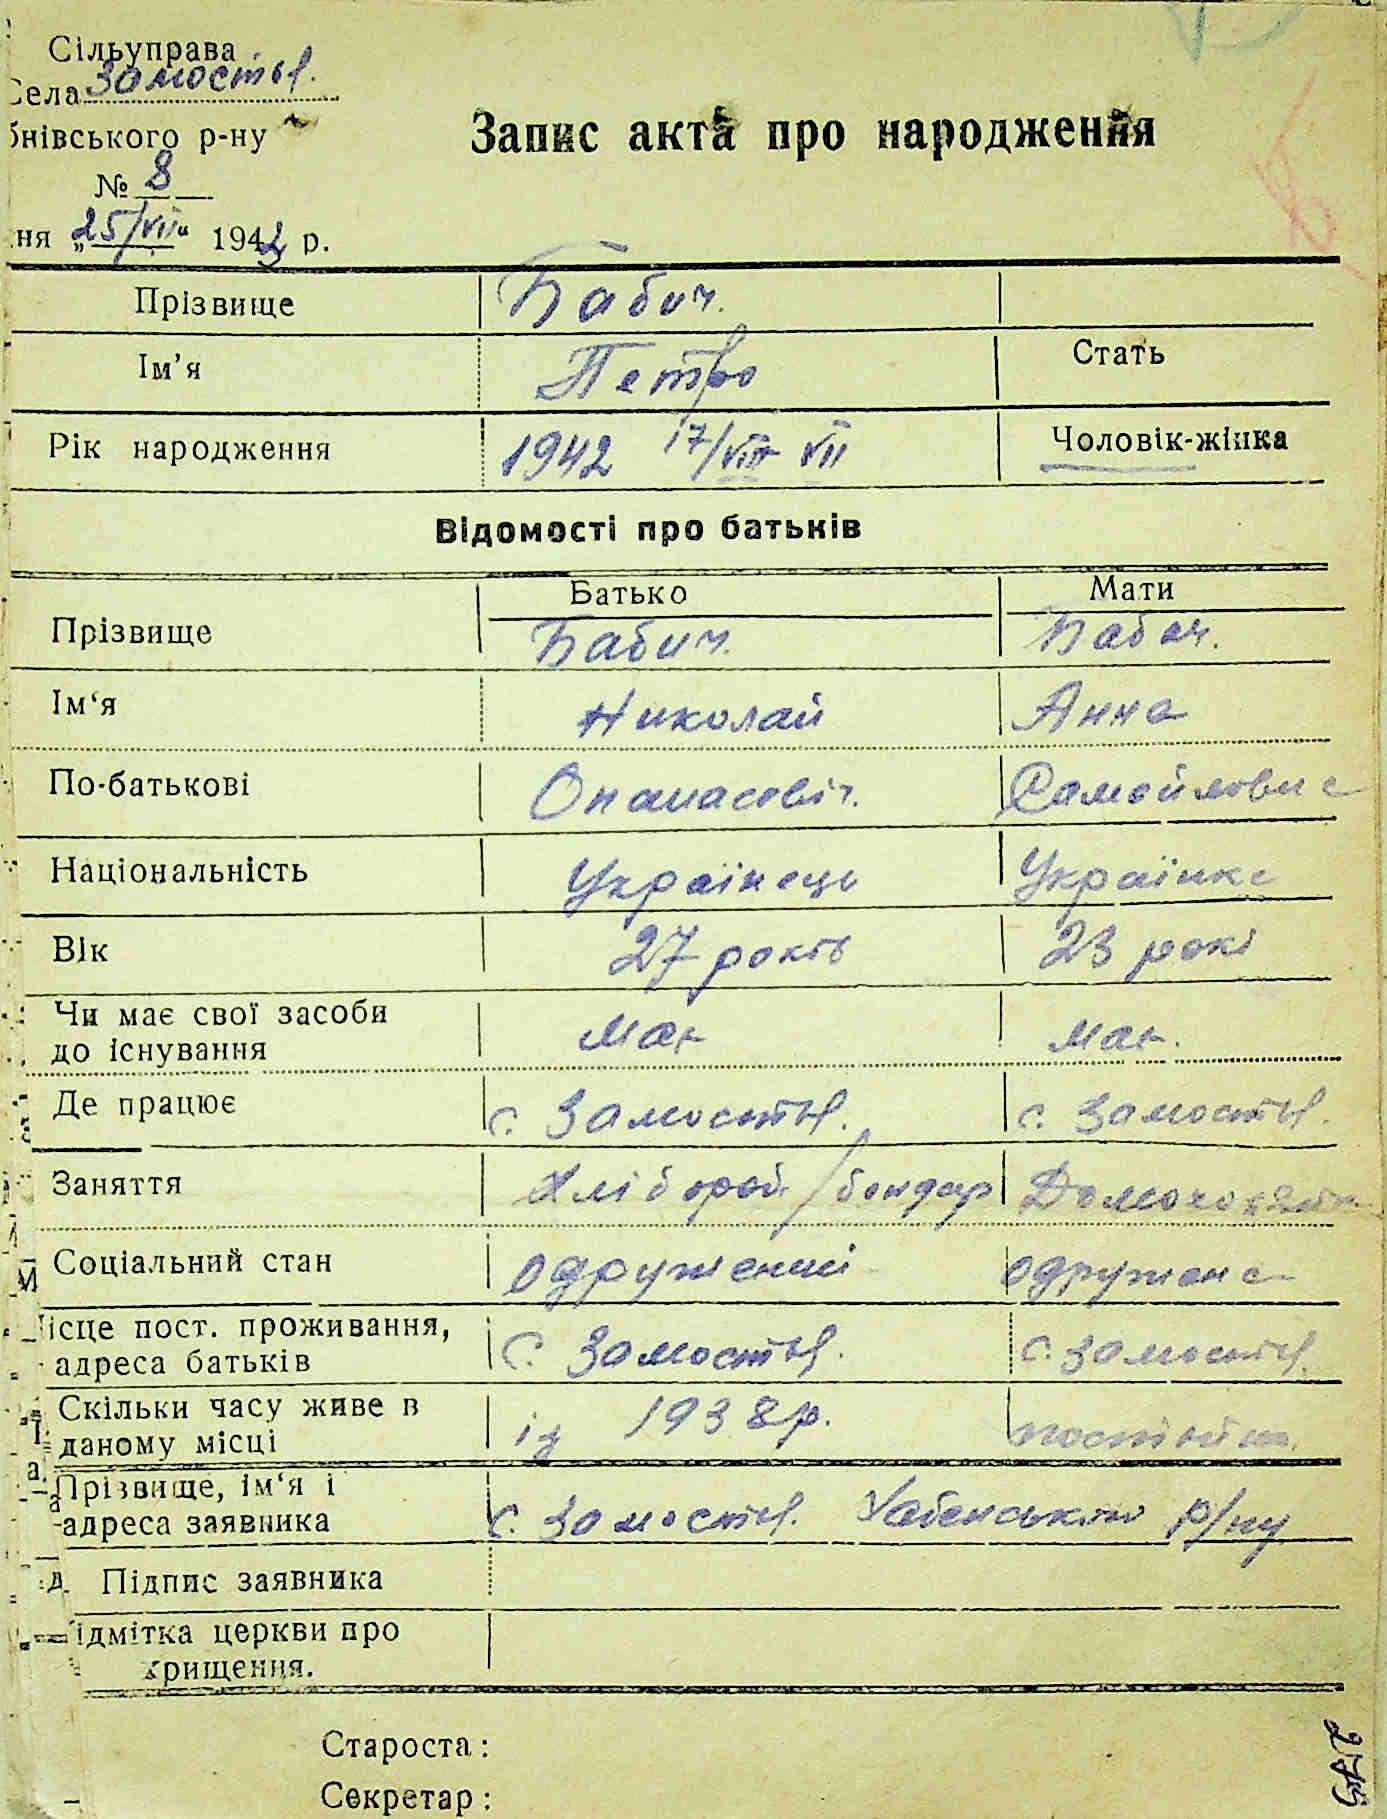 Сільуправа
Села Замостья.
бнівського р-ну
Запис акта про народження
№ 8
ня „25/VII" 1942 р.
Прізвище Бабич.
Ім’я Петро Стать
Рік народження 1942 17/VIII VII Чоловік-жінка
Відомості про батьків
Батько Мати
Прізвище Бабич. Бабич.
Ім‘я Николай Анна
По-батькові Опанасовіч. Самойловна
Національність Українець Українка
Вік 27 років 23 рокі
Чи має свої засоби
до існування має має.
Де працює с. Замостья. с. Замостья.
Заняття Хлібороб /бондар Домохозяйка
Соціальний стан одружений одружена
Місце пост. проживання,
адреса батьків С. Замостья. С. Замостья.
Скільки часу живе в
даному місці із 1938 р. постійно
Прізвище, ім‘я і
адреса заявника С. Замостья. Хабенського р/ну
Підпис заявника
ідмітка церкви про
хрищення.
Староста:
Секретар:
275